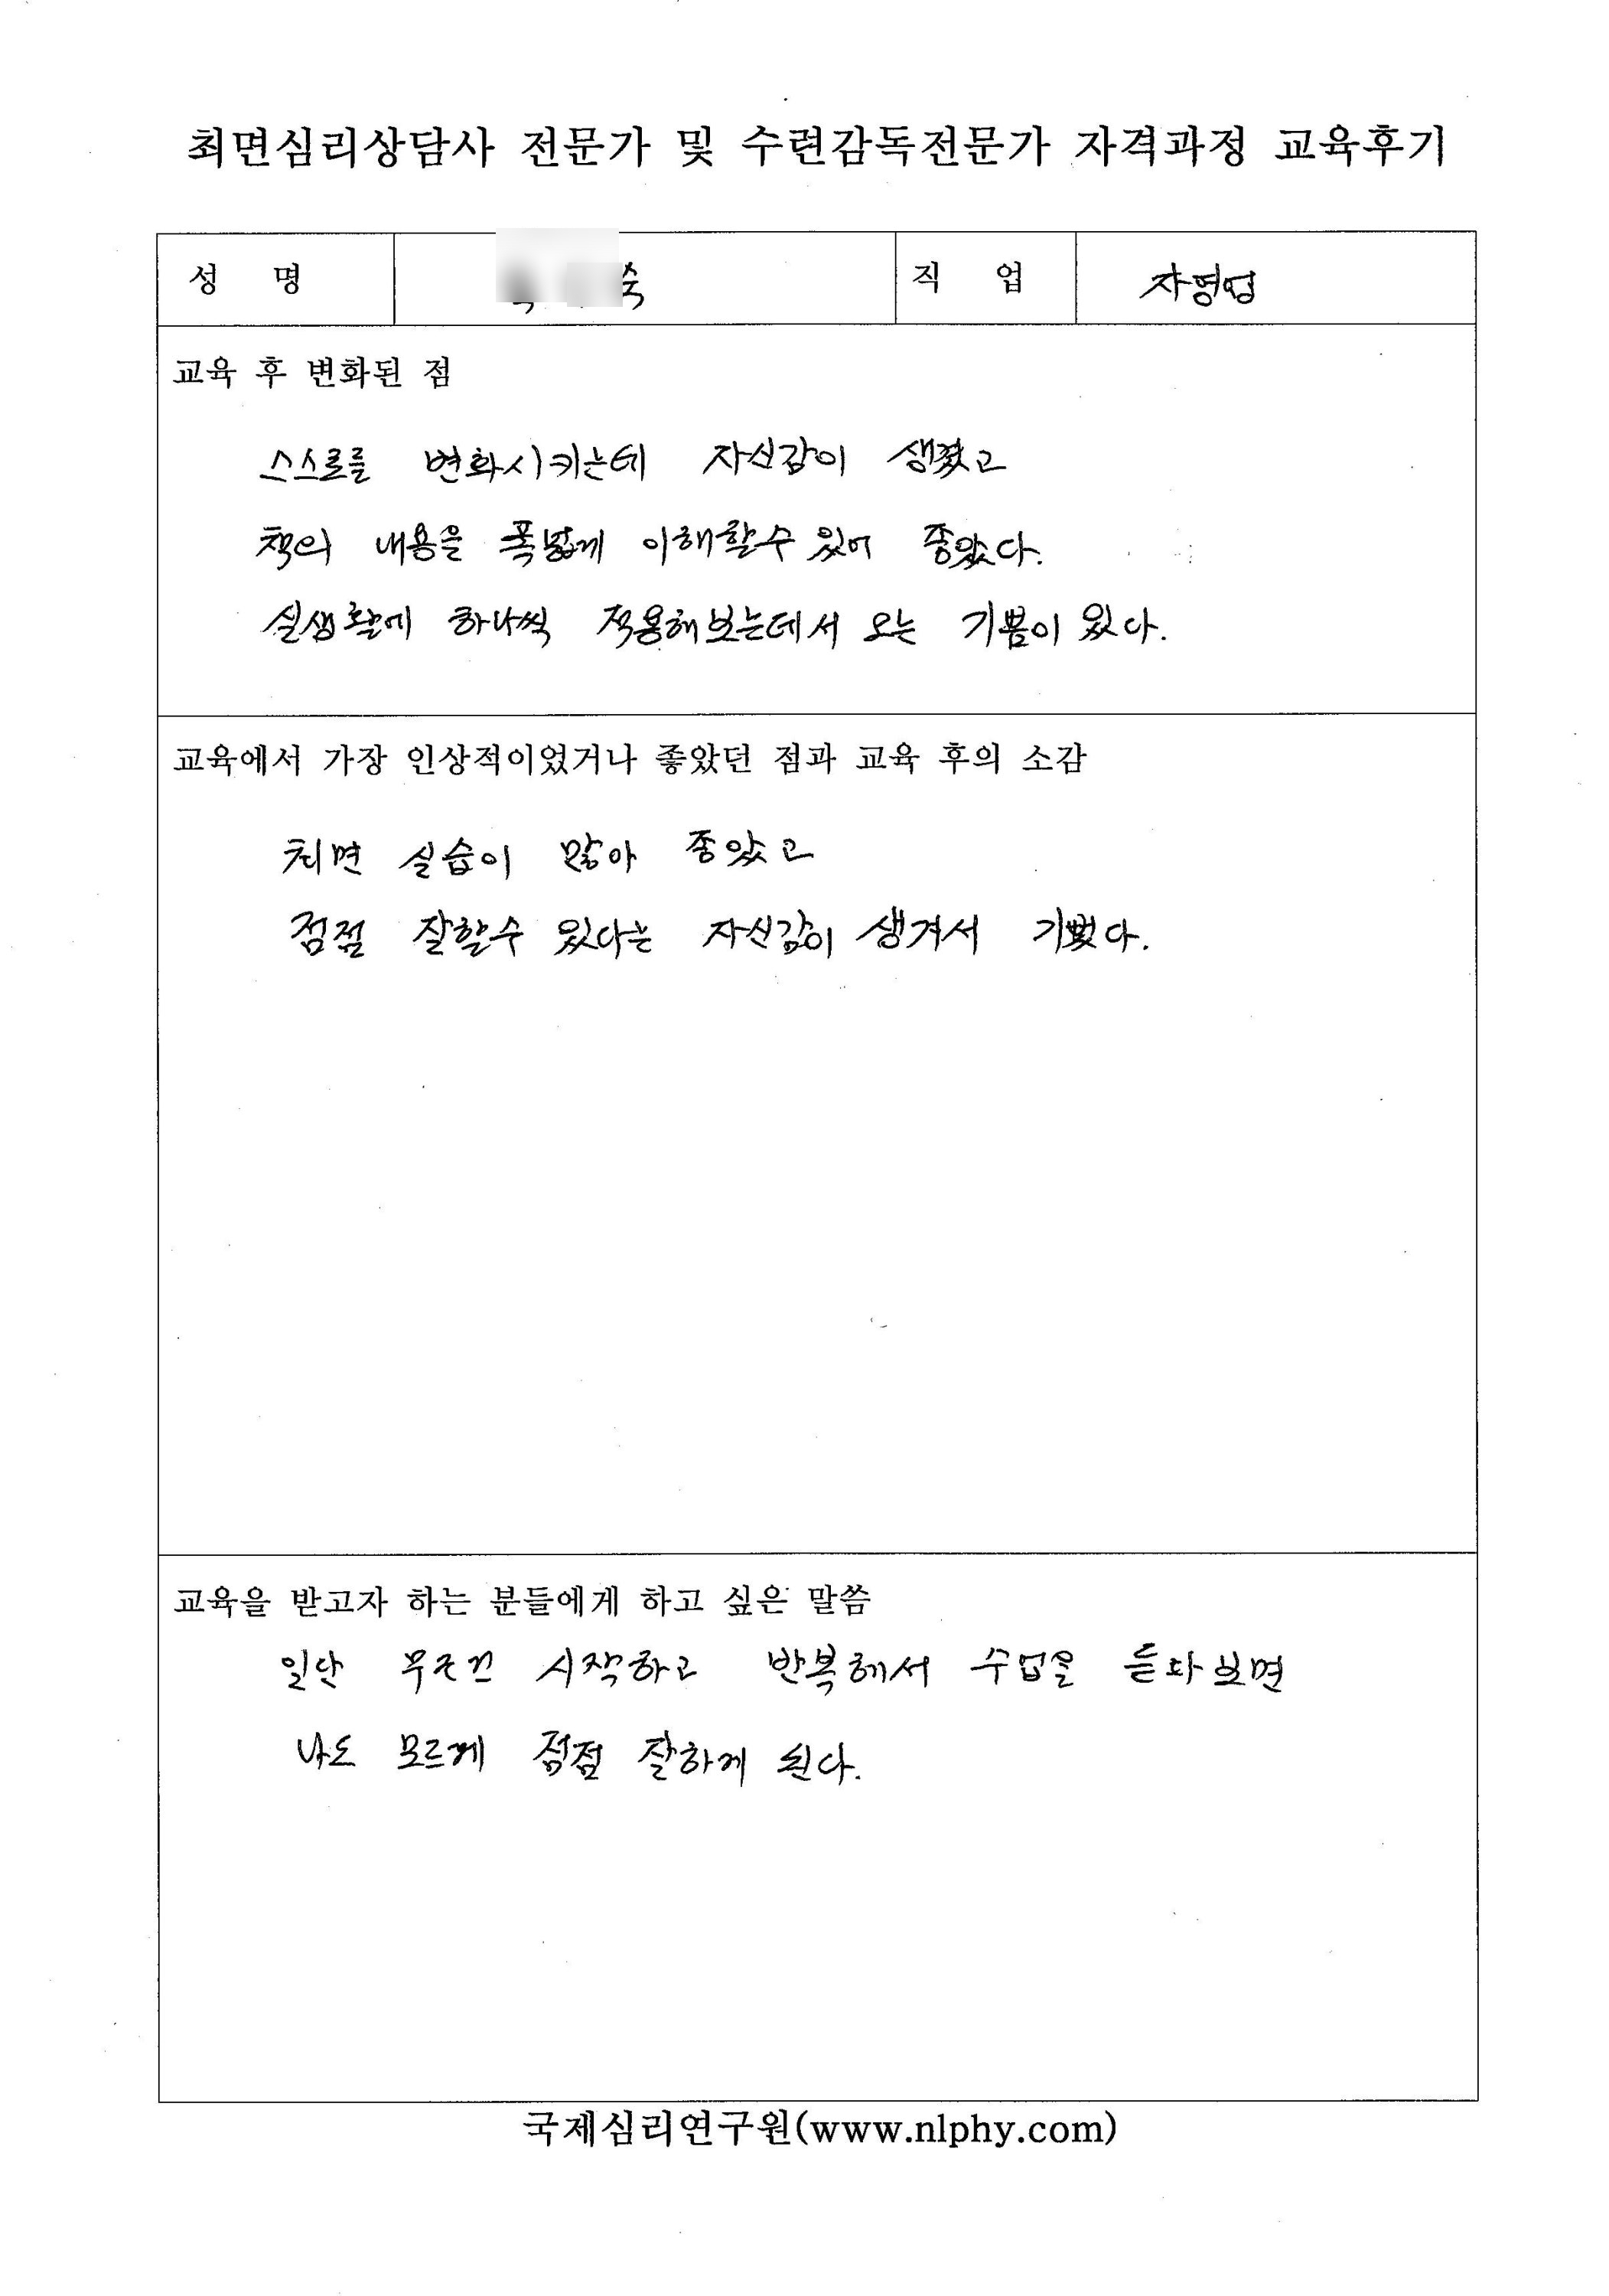 최면심리상담사 전문가 및 수련감독전문가 자격과정 교육후기
성 명 숙 직 업 자영업
교육 후 변화된 점
스스로를 변화시키는데 자신감이 생겼고
책의 내용을 폭넓게 이해할수 있어 좋았다.
실생활에 하나씩 적용해보는데서 오는 기쁨이 있다.
교육에서 가장 인상적이었거나 좋았던 점과 교육 후의 소감
최면 실습이 많아 좋았고
점점 잘할수 있다는 자신감이 생겨서 기뻤다.
교육을 받고자 하는 분들에게 하고 싶은 말씀
일단 무조건 시작하고 반복해서 수업을 듣다보면
나도 모르게 점점 잘하게 된다.
국제심리연구원(www.nlphy.com)